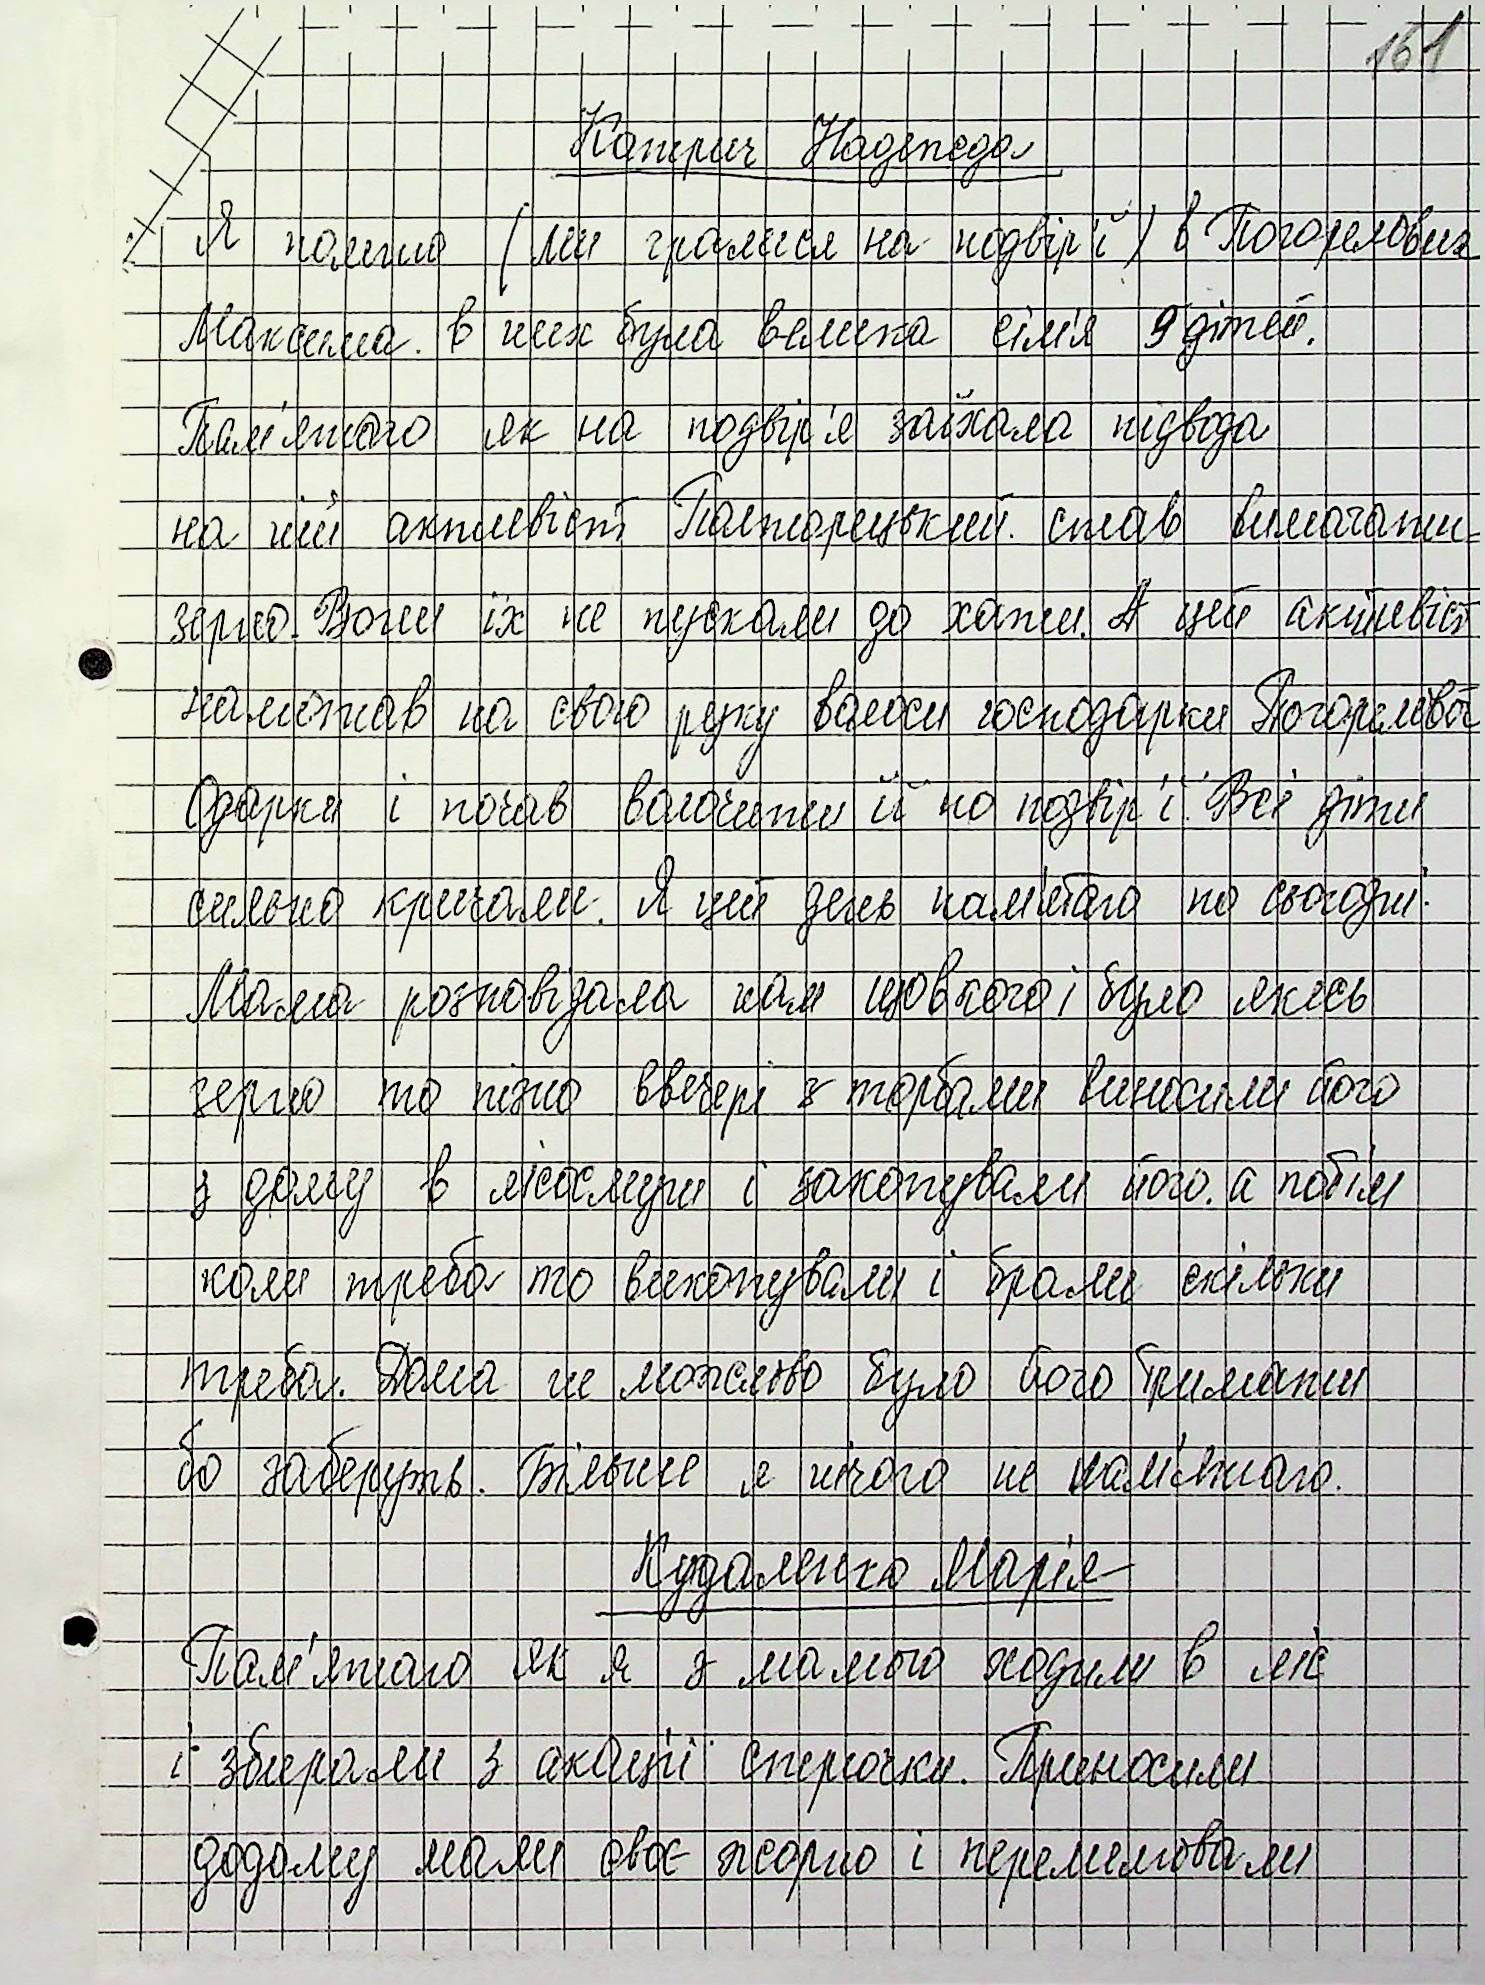 161
Катрич Надежда
Я помню (ми гралися на подвір'ї) в Погорелових
Максима. в них була велика сім'я 9 дітей.
Пам'ятаю як на подвір'я заїхала підвода
на ній активіст Полторецький. став вимагати
зерно. Вони їх не пускали до хати. А цей активіст
намотав на свою руку волоси господарки Погорелової
Одарки і почав волочити її по подвір'ї. Всі діти
сильно кричали. Я цей день пам'ятаю по сьогодні.
Мама розповідала нам що в кого і було якесь
зерно то пізно ввечері з торбами виносили його
з дому в лісосмуги і закопували його. а потім
коли треба то викопували і брали скільки
треба. Дома не можливо було його тримати
бо заберуть. Більше я нічого не пам'ятаю.
Кудаленко Марія
Пам'ятаю як я з мамою ходили в ліс
і збирали з акації стрючки. Приносили
додому мали своє жорно і перемилювали